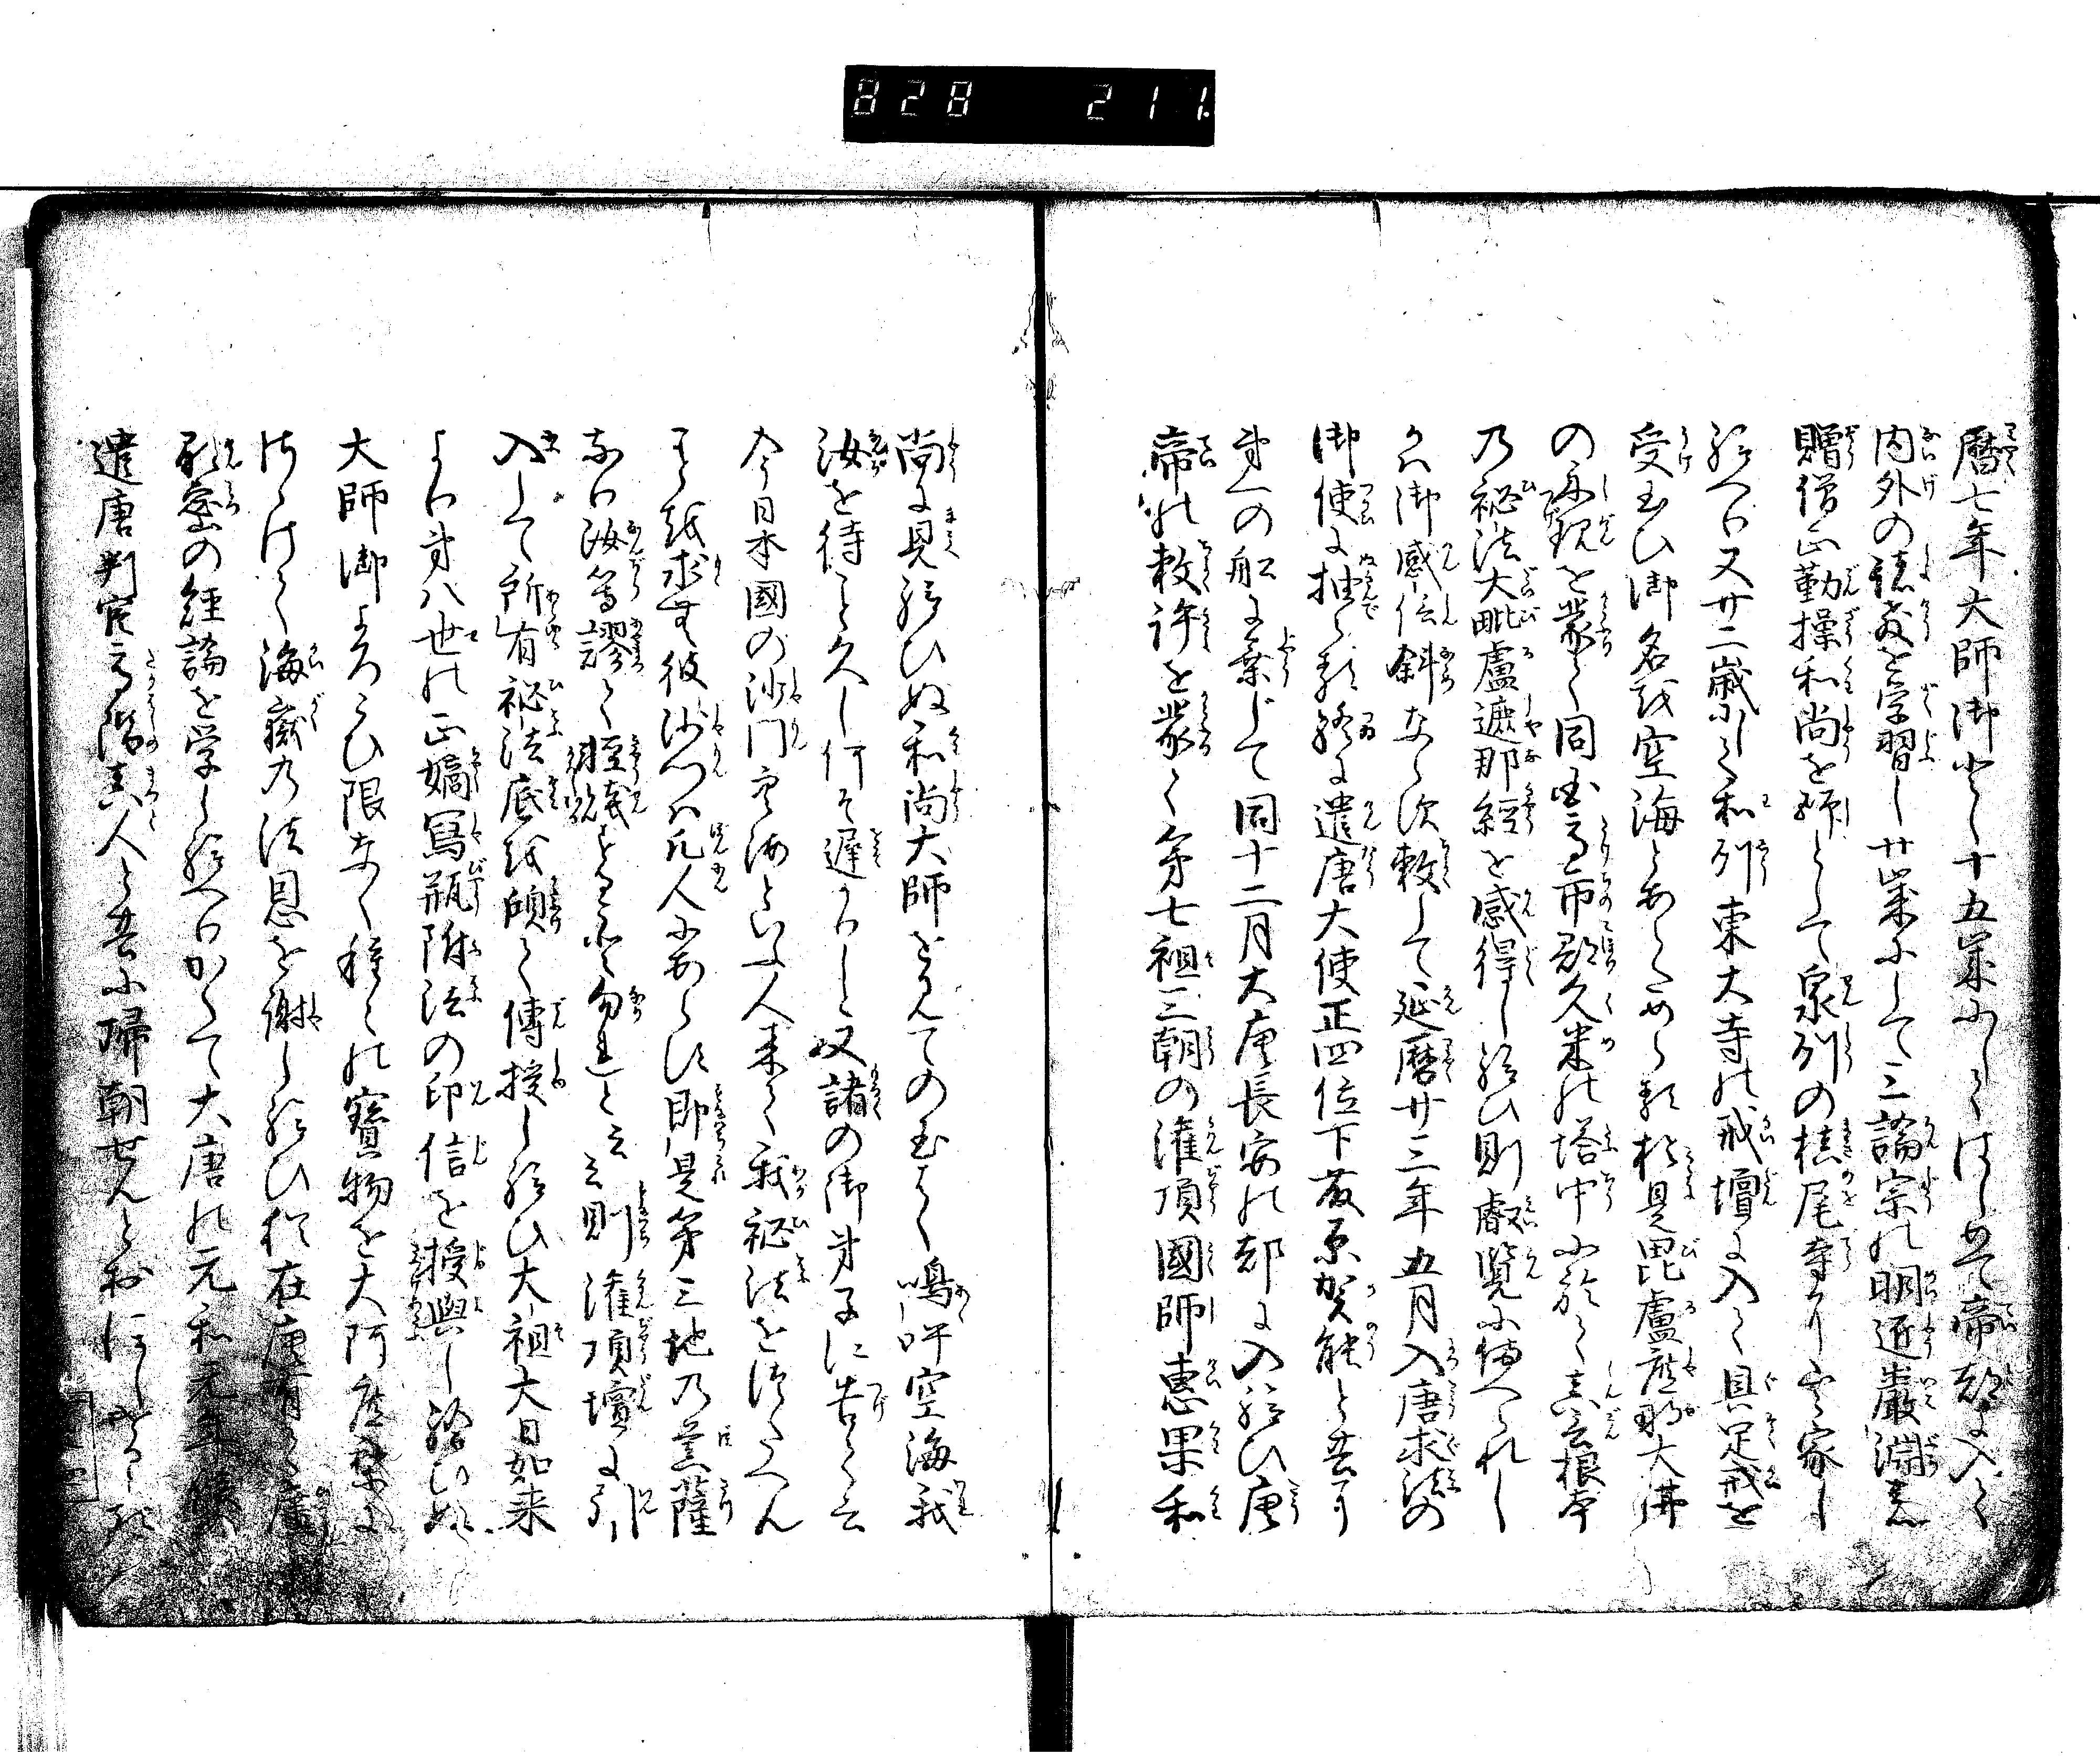 828 211
暦七年大師御とし十五歳にしてはしめて帝都に入て
内外の諸教を学習し廿歳にして三論宗の明匠巖淵
贈僧正勤操和尚を師として泉州の槙尾寺にて出家し
給へり又廿二歳にして和州東大寺の戒壇に入て具足戒を
受玉ひ御名を空海とあらため給於是毘盧遮那大佛
の示現を蒙て同国高市郡久米の塔中に於て真言根本
乃秘法大毗盧遮那経を感得し給ひ則叡覧に備へられし
かは御感信斜ならす次敕して延暦廿三年五月入唐求法の
御使に抽られ終に遣唐大使正四位下藤原賀能と共に
第一の舩に乗じて同十二月大唐長安の都に入給ひ唐
帝の敕許を蒙て第七祖三朝の潅頂國師惠果和
尚に見給ひぬ和尚大師をみての玉はく嗚呼空海我
汝を待こと久し何そ遅かりしと又諸の御弟子に告て云
今日本國の沙門空海といふ人来て我秘法をつたへん
ことを求む彼沙门は凡人にあらす即是第三地乃菩薩
なり汝等謬て軽蔑することなかれと云云則潅頂壇に引
入して所有秘法底を傾て傳授し給ひ大祖大日如来
より第八世の正嫡冩瓶附法の印信を授與し給ひぬ
大師御よろこひ限なく種々の寳物を大阿闍梨に
さゝけて海嶽乃法恩を謝し給ひ猶在唐有て廣
顕密の経論を学し給へりかくて大唐の元和元年
遣唐判官高階真人と共に歸朝せんとおほしめし